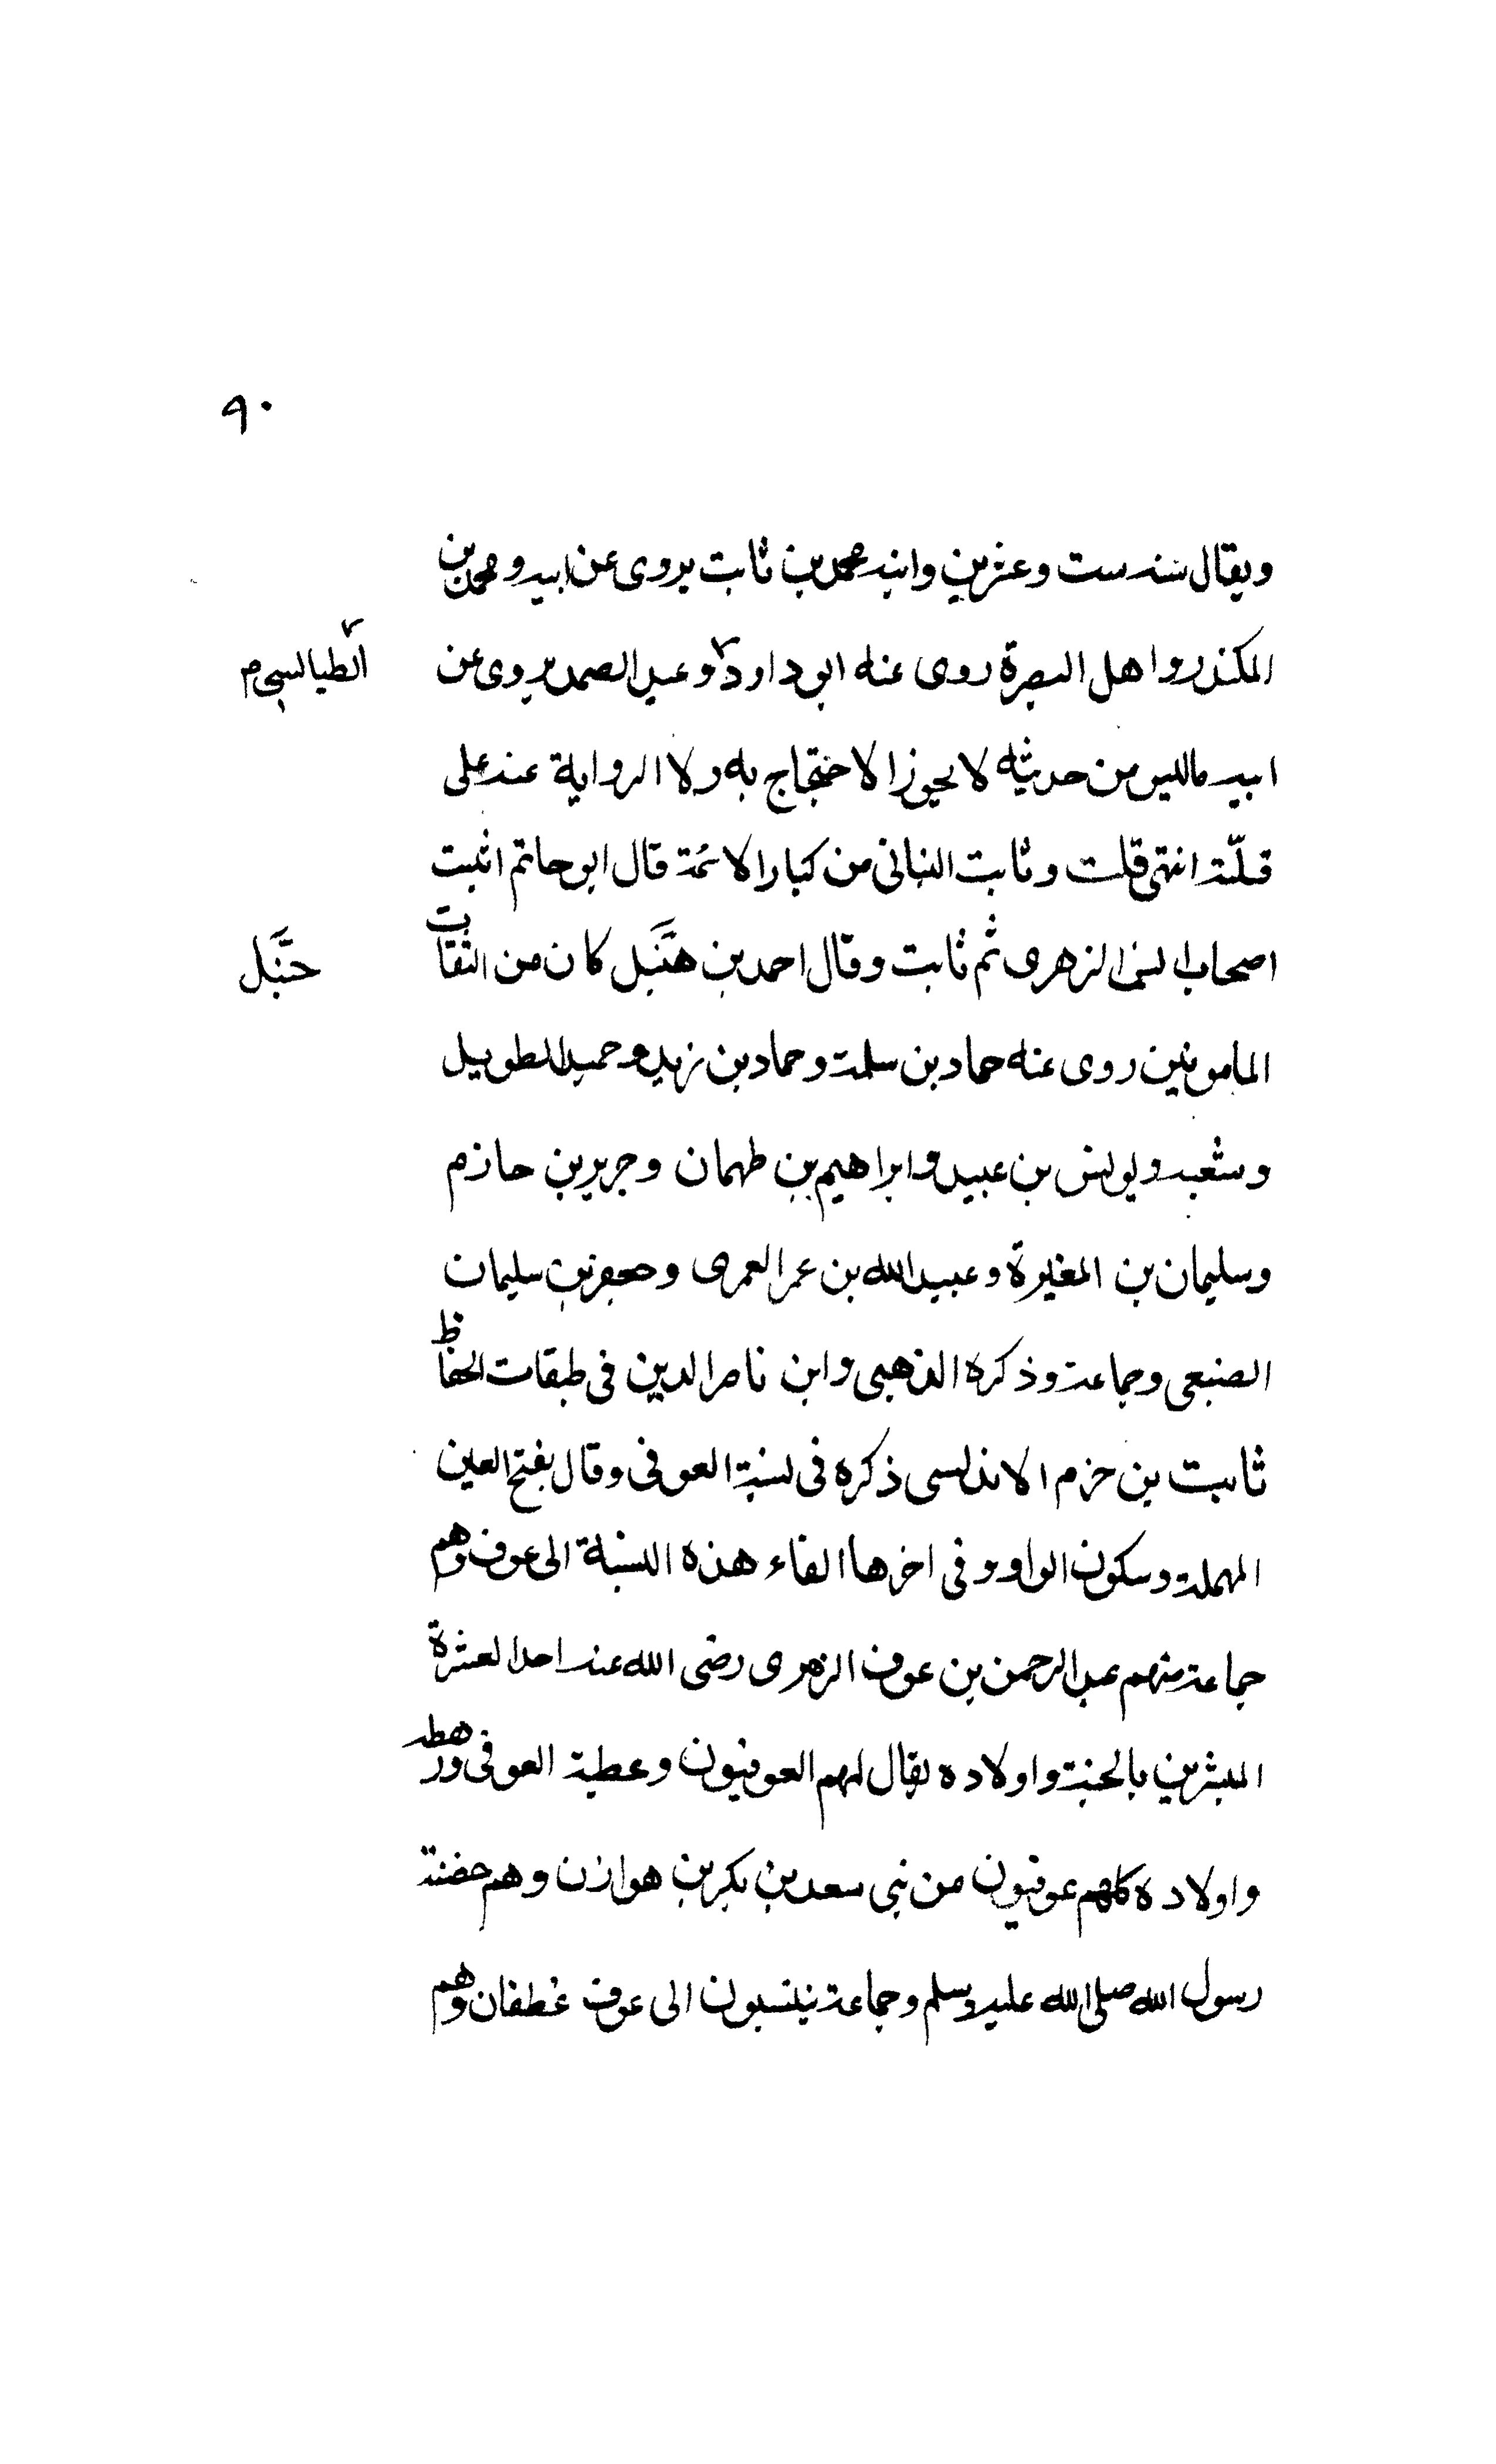 ٩٠
ويقال سنة ست وعشرين وابنه محمد بن ثابت يروى عن ابيه ومحمد بن
المكندر واهل البصرة روى عنه ابو داود وعبد الصمد يروى عن
الطيالسى م
ابيه ماليس من حديثه لا يجوز الاحتجاج به ولا الرواية عنه على
قلّة انتهى قلت وثابت البنانى من كبار الائمة قال ابو حاتم اثبت
اصحاب انس الزهرى ثم ثابت وقال احمد بن هنبل كان من الثقات
حنبل
المامونين روى عنه حماد بن سلمة وحماد بن زيد وحميد الطويل
وشعبه ويونس بن عبيد وابراهيم بن طهمان وجرير بن حازم
وسليمان بن المغيرة وعبيد الله بن عمر العمرى وجعفر بن سليمان
الضبعى وجماعة وذكره الذهبى وابن ناصر الدين فى طبقات الحفاظ
ثابت بن حزم الاندلسى ذكره فى نسبة العوفى وقال بفتح العين
المهملة وسكون الواو وفى اخرها الفاء هذه النسبة الى عوف وهم
جماعة منهم عبد الرحمن بن عوف الزهرى رضى الله عنه احد العشرة
المبشرين بالجنة واولاده يقال لهم العوفيون وعطية العوفى ورهطه
واولاده كلهم عوفيون من بنى سعد بن بكر بن هوازن وهم حضنة
رسول الله صلى الله عليه وسلم وجماعة ينتسبون الى عوف غطفان وهم